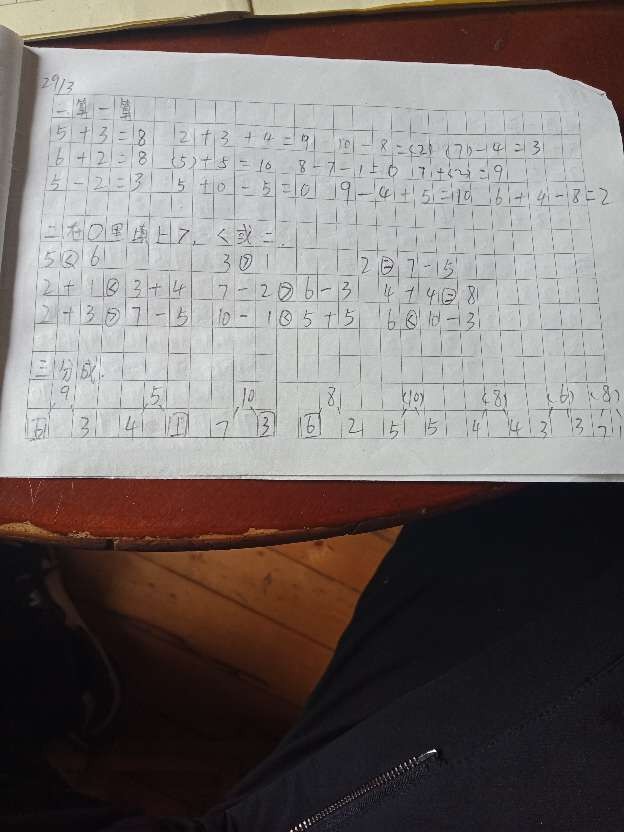 29/3
一算一算
5+3=8 2+3+4=9 10-8=(2) (7)-4=3
6+2=8 (5)+5=10 8-7-1=0 7+(2)=9
5-2=3 5+0-5=0 9-4+5=10 6+4-8=2
二在○里填上>、<或=.
5<6 3>1 2=7-5
2+1<3+4 7-2>6-3 4+4=8
2+3>7-5 10-1<5+5 6<10-3
三分成.
9 5 10 8 (10) (8) (6) (8)
6 3 4 1 7 3 6 2 5 5 4 4 3 3 7 1